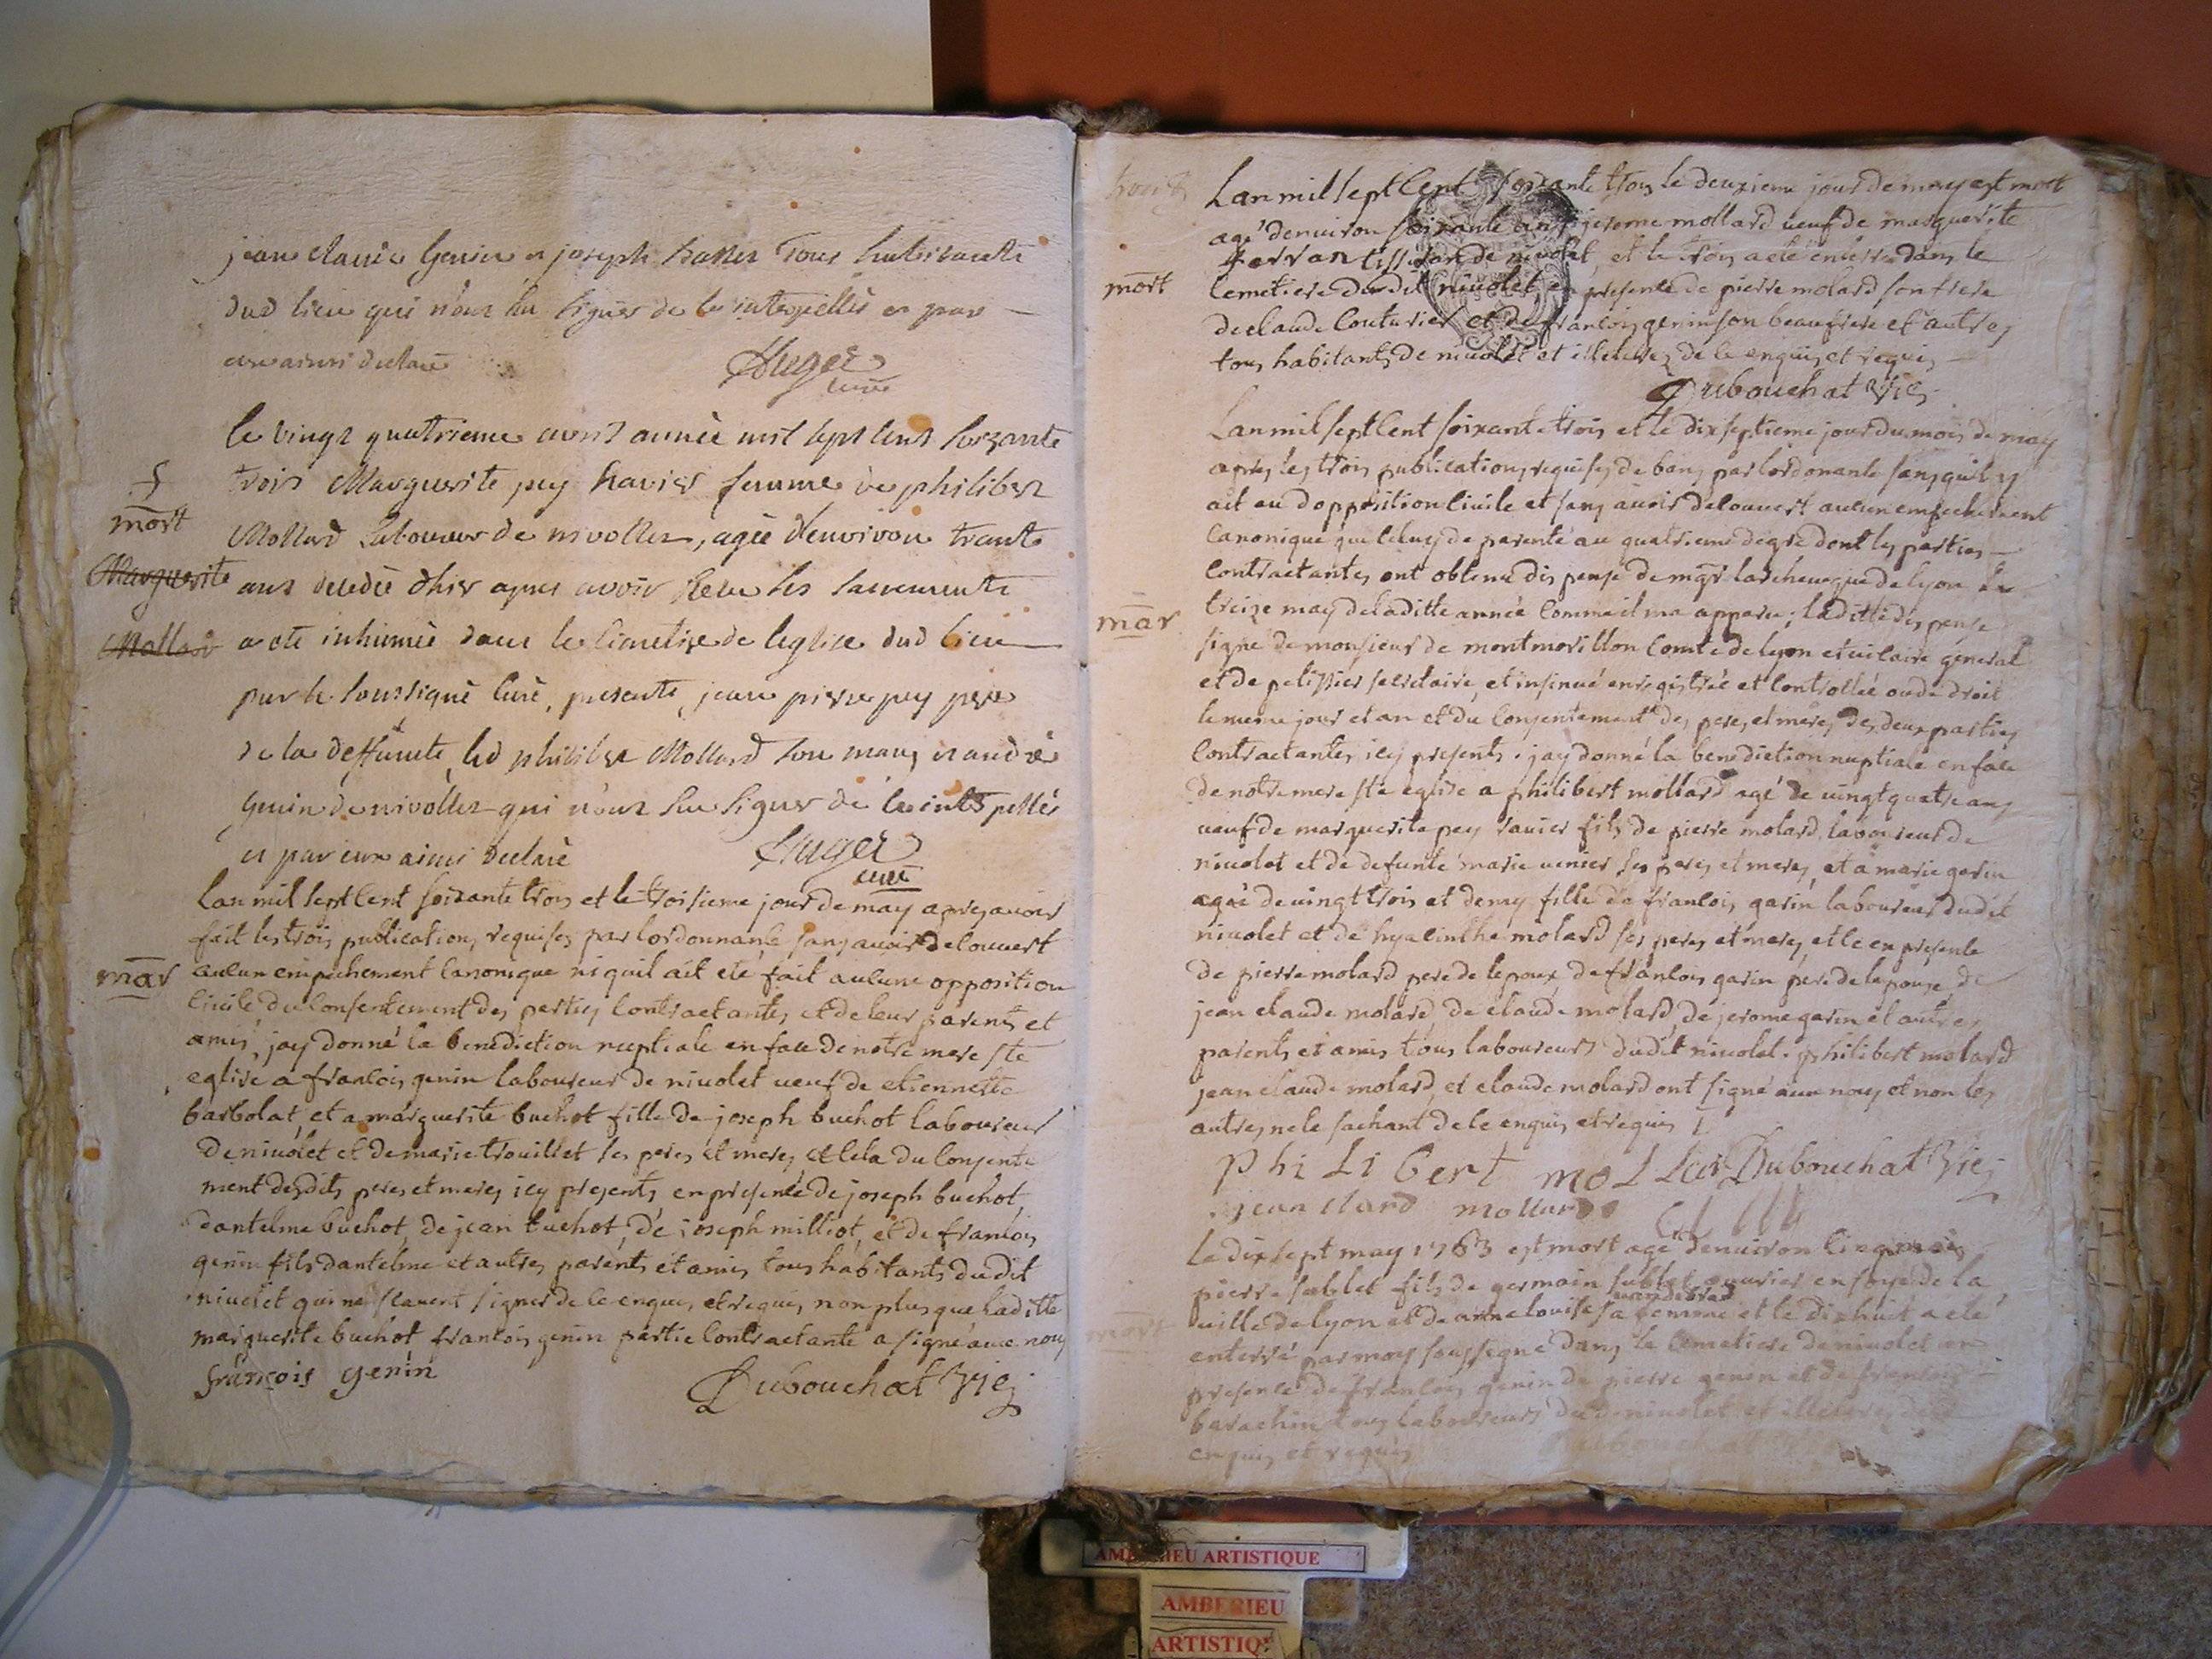 jean claude Genin et joseph tous habitants
dud lieu qui n'ont su signer de ce interpellés et par
eux ainsi declaré
Auger
curé
le vingt quatrieme avril année mil sept cent soixante
trois Marguerite pey ravier femme de philibert
mort
Mollard Laboureur de nivollet, agée d'environ trante
Marguerite
ans decedée d'hier apres avoir Receu les sacrements
Mollard
a eté inhumée dans le Cimetiere de l'eglise dud lieu
par le soussigné Curé, presents, jean pierre pey pere
de la deffunte, led philibert Mollard son mary et andré
Genin de nivollet qui n'ont sceu signer de ce interpellés
et par eux ainsi declaré
Auger
curé
Lan mil sept Cent soixante trois et le troisieme jour de may apres avoir
fait les trois publications requises par lordonnance sans avoir decouvert
mar
aucun empechement canonique ni quil ait eté fait aucune opposition
Civile du Consentement des parties Contractantes et de leur parents et
amis, jay donné la benediction nuptiale en face de notre mere ste
eglise a francois genin laboureur de nivolet veuf de etiennette
barbolat, et a marguerite buchot fille de joseph buchot laboureur
de nivolet et de marie trouillet ses peres et meres et cela du Consente
ment desdits peres et meres icy presents en presence de joseph buchot,
dantelme buchot, de jean buchot, de joseph milliot, et de francois
genin fils dantelme et autres parents et amis tous habitants dudit
nivolet qui ne scavent signer de ce enquis et requis non plus que laditte
marguerite buchot francois genin partie Contractante a signé avec nous
françois genin
Dubouchat
Lan mil sept Cent soixante trois le deuxieme jour de may est mort
agé denviron soixante ans jerome mollard veuf de marguerite
ferran tisseran de nivolet, et le trois a eté enterré dans le
mort
Cemetiere dudit nivolet en presence de pierre molard son frere
de claude Couturier et de francois genin son beaufrere et autres
tous habitants de nivolet et illeterés de ce enquis et requis
Dubouchat
Lan mil sept Cent soixante trois et le dix septieme jour du mois de may
apres les trois publications requises de bans par lordonance sans quil y
ait eu dopposition Civile et sans avoir decouvert aucun empechement
Canonique que celuy de parenté au quatrieme degré dont les parties
Contractantes ont obtenu dispense de mgr larcheveque de lyon le
mar
treize may de laditte année Comme il ma apparu; laditte dispense
signé de monsieur de montmorillon Comte de lyon et vicaire general
et de petissier secretaire, et insinué enregistrée et Controllée ou de droit
le meme jour et an et du Consentement des peres et meres des deux parties
Contractantes icy presents. jay donné la benediction nuptiale en face
de notre mere ste eglise a philibert mollard agé de vingt quatre ans
veuf de marguerite pey ravier fils de pierre molard laboureur de
nivolet et de defunte marie venier ses peres et meres, et a marie garin
agée de vingt trois et demy fille de francois garin laboureur dudit
nivolet et de hyacinthe molard ses peres et meres, et ce en presence
de pierre molard pere de lepoux, de francois garin pere de lepouse, de
jean claude molard, de claude molard, de jerome garin et autres
parents et amis tous laboureurs dudit nivolet. philibert molard
jean claude molard, et claude molard ont signé avec nous et non les
autres ne le sachant de ce enquis et requis
phi Li bert moLLar Dubouchat
jean clard mollard
Le dix sept may 1763 est mort agé denviron
pierre sublet fils de germain sublet ouvrier en soye de la
ville de lyon et de anne louise sa femme et le dixhuit a eté
mort
enterré par moy soussigné dans le cemetiere de nivolet en
presence de francois genin de pierre genin et de francois
barachin tous laboureurs dud nivolet et illeterés de ce
enquis et requis
AMBERIEU ARTISTIQUE
AMBERIEU
ARTISTIQUE